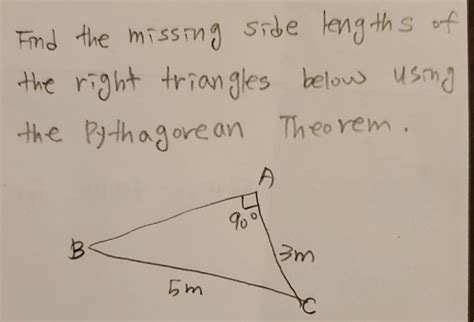 Find the missing side lengths of
the right triangles below using
the Pythagorean Theorem.
A
90°
B
3m
5m
C